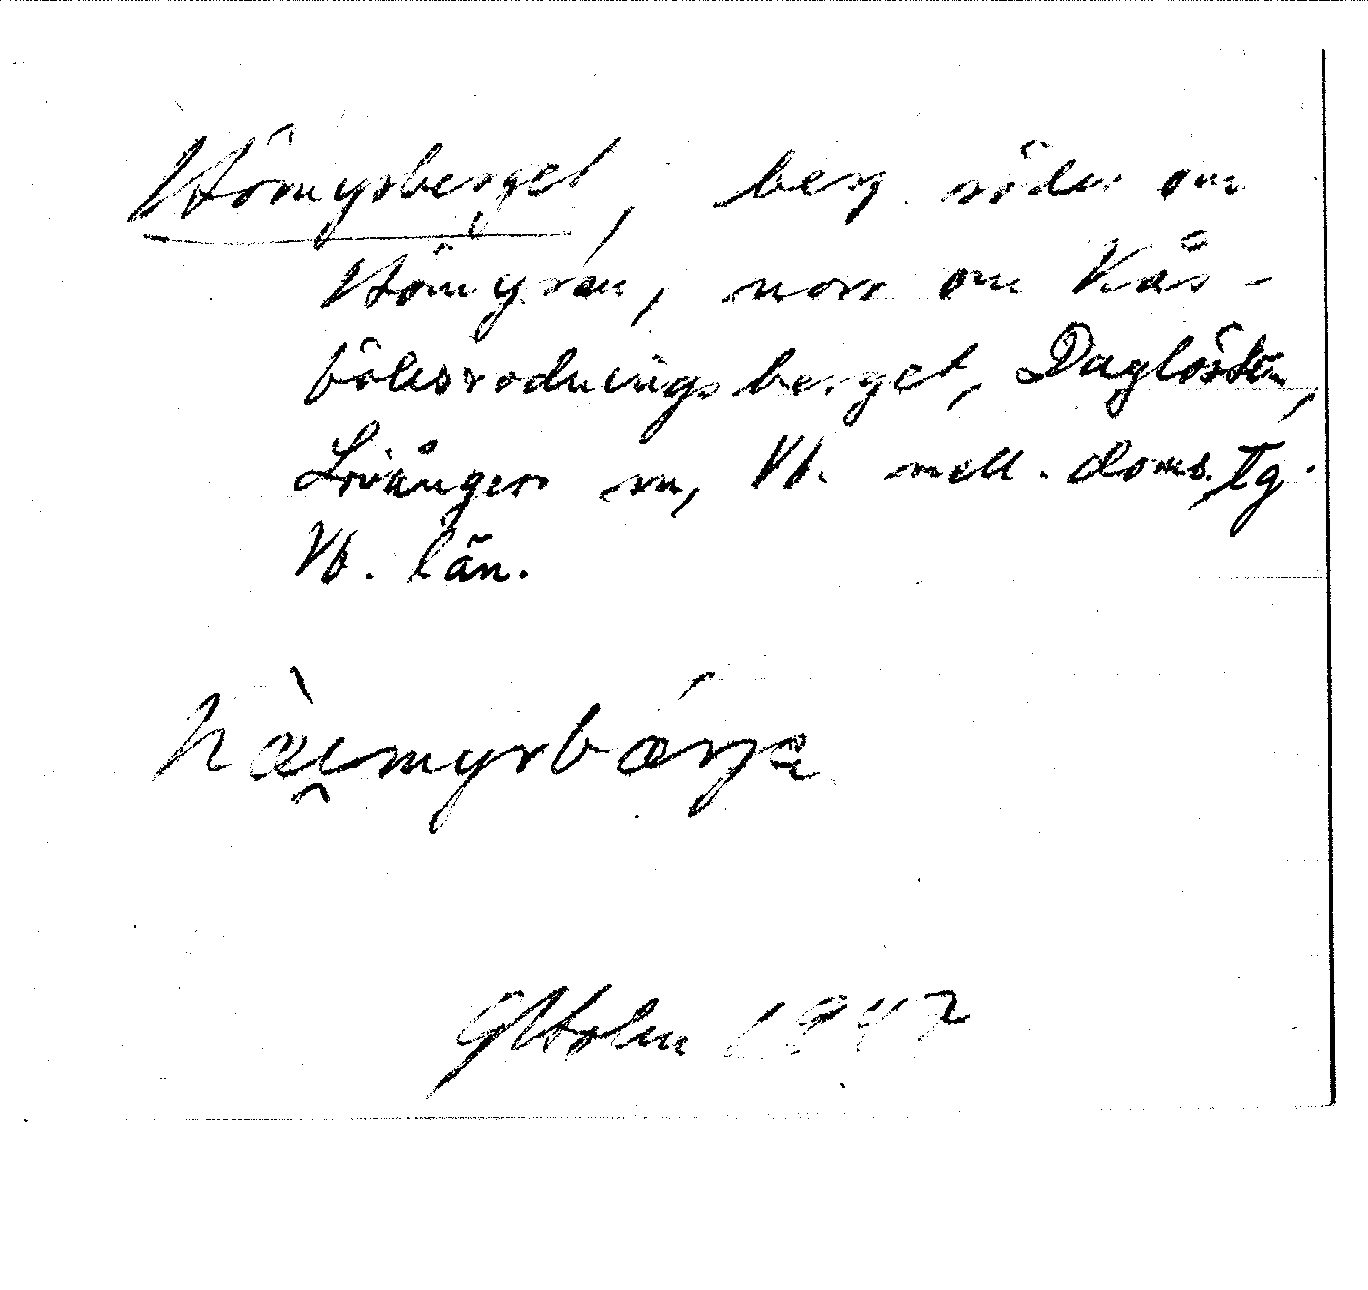 Hömyrberget, berg söder om
Hömyran, norr om Kås-
bölesrödningsberget, Daglösten,
Lövångers sn, Vb. mell. doms. tg.
Vb. län.
hàe̯myrbǽrjə
GHolm 1947